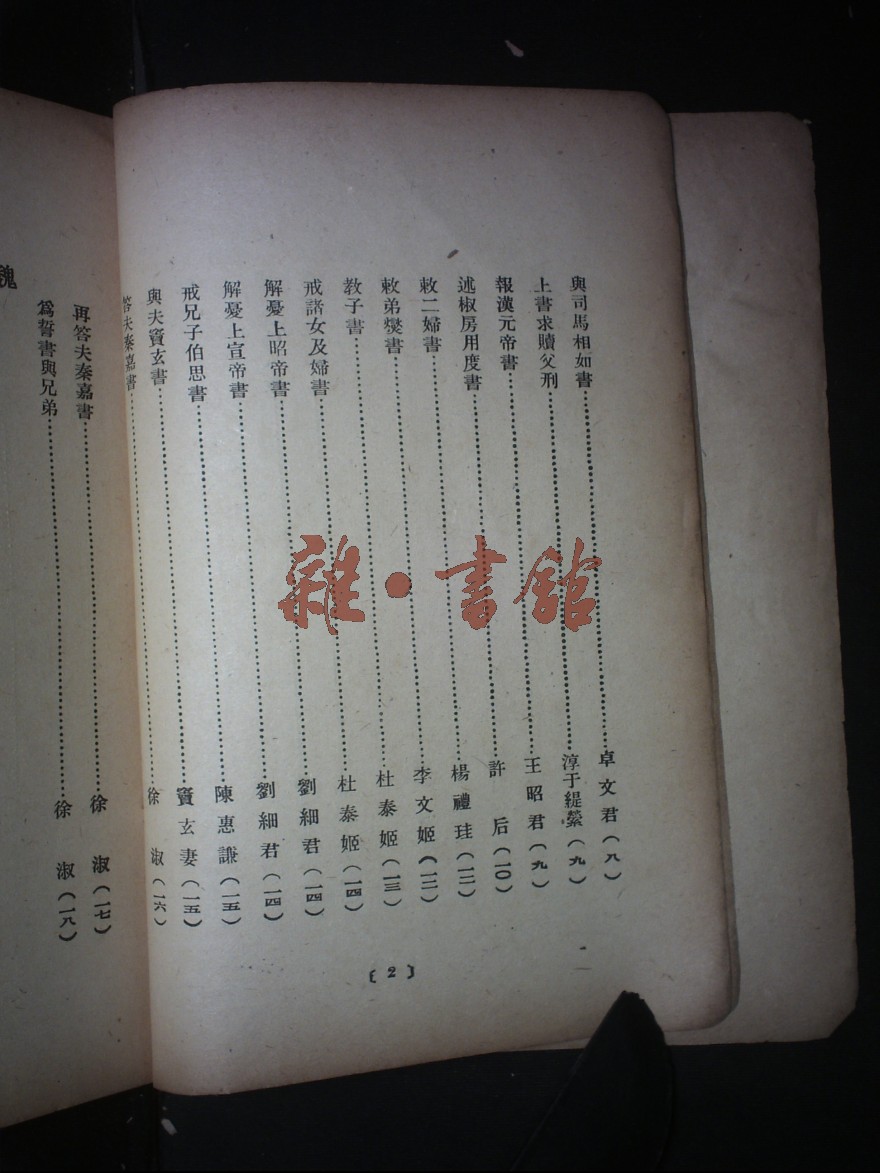 與司馬相如書……卓文君(八)
上書求贖父刑……淳于緹縈(九)
報漢元帝書……王昭君(九)
述椒房用度書……許后(一〇)
敕二婦書……楊禮珪(一二)
敕弟㷸書……李文姬(一二)
教子書……杜泰姬(一三)
戒諸女及婦書……杜泰姬(一四)
解憂上昭帝書……劉細君(一四)
解憂上宣帝書……劉細君(一四)
戒兄子伯思書……陳惠謙(一五)
與夫竇玄書……竇玄妻(一五)
答夫秦嘉書……徐淑(一六)
再答夫秦嘉書……徐淑(一七)
爲誓書與兄弟……徐淑(一八)
魏
〔2〕
雜·書館